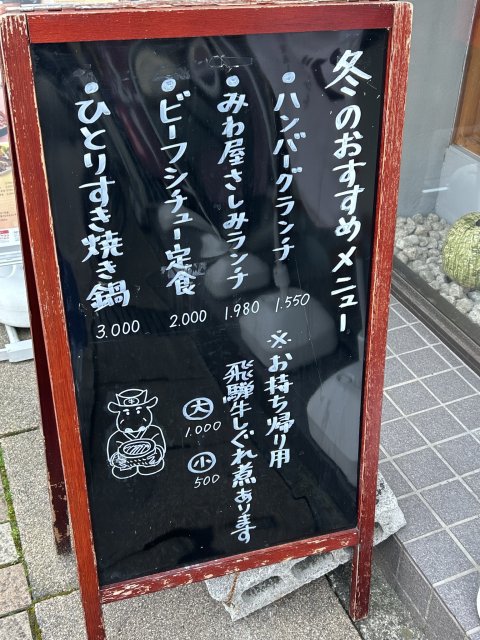 冬のおすすめメニュー
・ハンバーグランチ 1.550
・みわ屋さしみランチ 1.980
・ビーフシチュー定食 2.000
・ひとりすき焼き鍋 3.000
※お持ち帰り用
飛騨牛しぐれ煮あります
大 1.000
小 500